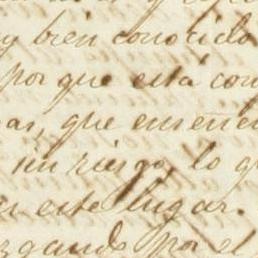 y bien conocido
porque está con
as, que ensena
sin riesgo, lo q
este lugar.
zgando por el